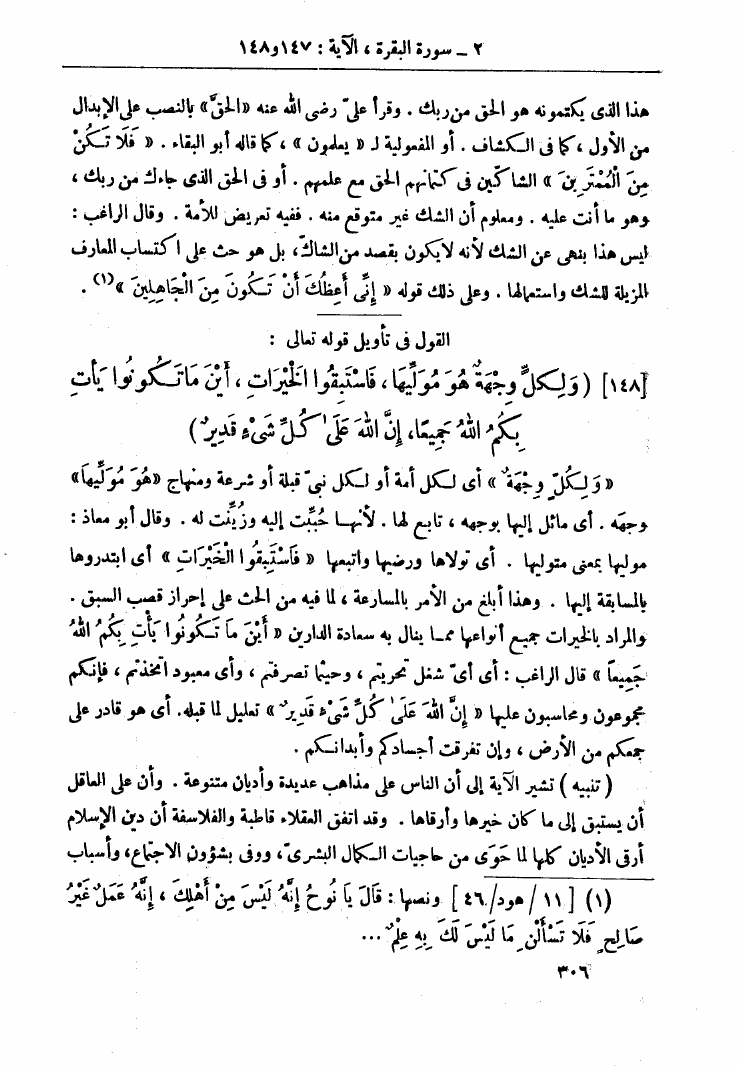 ٢ ــ سورة البقرة ، الآية : ١٤٧و١٤٨
هذا الذى يكتمونه هو الحق من ربك . وقرأ علىّ رضى الله عنه «الحقَّ» بالنصب على الإبدال
من الأول ، كما فى الكشاف . أو المفعولية لـ « يعلمون » ، كما قاله أبو البقاء . « فَلَا تَكُنْ
مِنَ الْمُمْتَرِينَ » الشاكّين فى كتمانهم الحق مع علمهم . أو فى الحق الذى جاءك من ربك ،
وهو ما أنت عليه . ومعلوم أن الشك غير متوقع منه . ففيه تعريض للأمة . وقال الراغب :
ليس هذا بنهى عن الشك لأنه لايكون بقصد من الشاكّ، بل هو حث على اكتساب المعارف
المزيلة للشك واستعمالها . وعلى ذلك قوله « إِنِّى أَعِظُكَ أَنْ تَكُونَ مِنَ الْجَاهِلِينَ »(١) .
القول فى تأويل قوله تعالى :
[١٤٨] ( وَلِكُلٍّ وِجْهَةٌ هُوَ مُوَلِّيهَا، فَاسْتَبِقُوا الْخَيْرَاتِ ، أَيْنَ مَاتَكُونُوا يَأْتِ
بِكُمُ اللهُ جَمِيعًا، إِنَّ اللهَ عَلَىٰ كُلِّ شَىْءٍ قَدِيرٌ )
« وَلِكُلٍّ وِجْهَةٌ » أى لكل أمة أو لكل نبىّ قبلة أو شرعة ومنهاج «هُوَ مُوَلِّيهَا»
وجهَه . أى مائل إليها بوجهه ، تابع لها . لأنها حُبِّبت إليه وزُيِّنت له . وقال أبو معاذ :
موليها بمعنى متوليها . أى تولاها ورضيها واتبعها « فَاسْتَبِقُوا الْخَيْرَاتِ » أى ابتدروها
بالمسابقة إليها . وهذا أبلغ من الأمر بالمسارعة ، لما فيه من الحث على إحراز قصب السبق .
والمراد بالخيرات جميع أنواعها مما ينال به سعادة الدارين « أَيْنَ مَا تَكُونُوا يَأْتِ بِكُمُ اللهُ
جَمِيعاً » قال الراغب : أى أىّ شغل تحريتم ، وحيثما تصرفتم ، وأى معبود اتخذتم ، فإنكم
مجموعون ومحاسبون عليها « إِنَّ اللهَ عَلَىٰ كُلِّ شَىْءٍ قَدِيرٌ » تعليل لما قبله. أى هو قادر على
جمعكم من الأرض ، وإن تفرقت أجسادكم وأبدانكم .
( تنبيه ) تشير الآية إلى أن الناس على مذاهب عديدة وأديان متنوعة . وأن على العاقل
أن يستبق إلى ما كان خيرها وأرقاها . وقد اتفق العقلاء قاطبة والفلاسفة أن دين الإسلام
أرقى الأديان كلها لما حَوَى من حاجيات الكمال البشرىّ، ووفى بشؤون الاجتماع، وأسباب
(١) [ ١١ / هود/ ٤٦ ] ونصها : قَالَ يَا نُوحُ إِنَّهُ لَيْسَ مِنْ أَهْلِكَ ، إِنَّهُ عَمَلٌ غَيْرُ
صَالِحٍ فَلَا تَسْأَلْنِ مَا لَيْسَ لَكَ بِهِ عِلْمٌ ...
٣٠٦